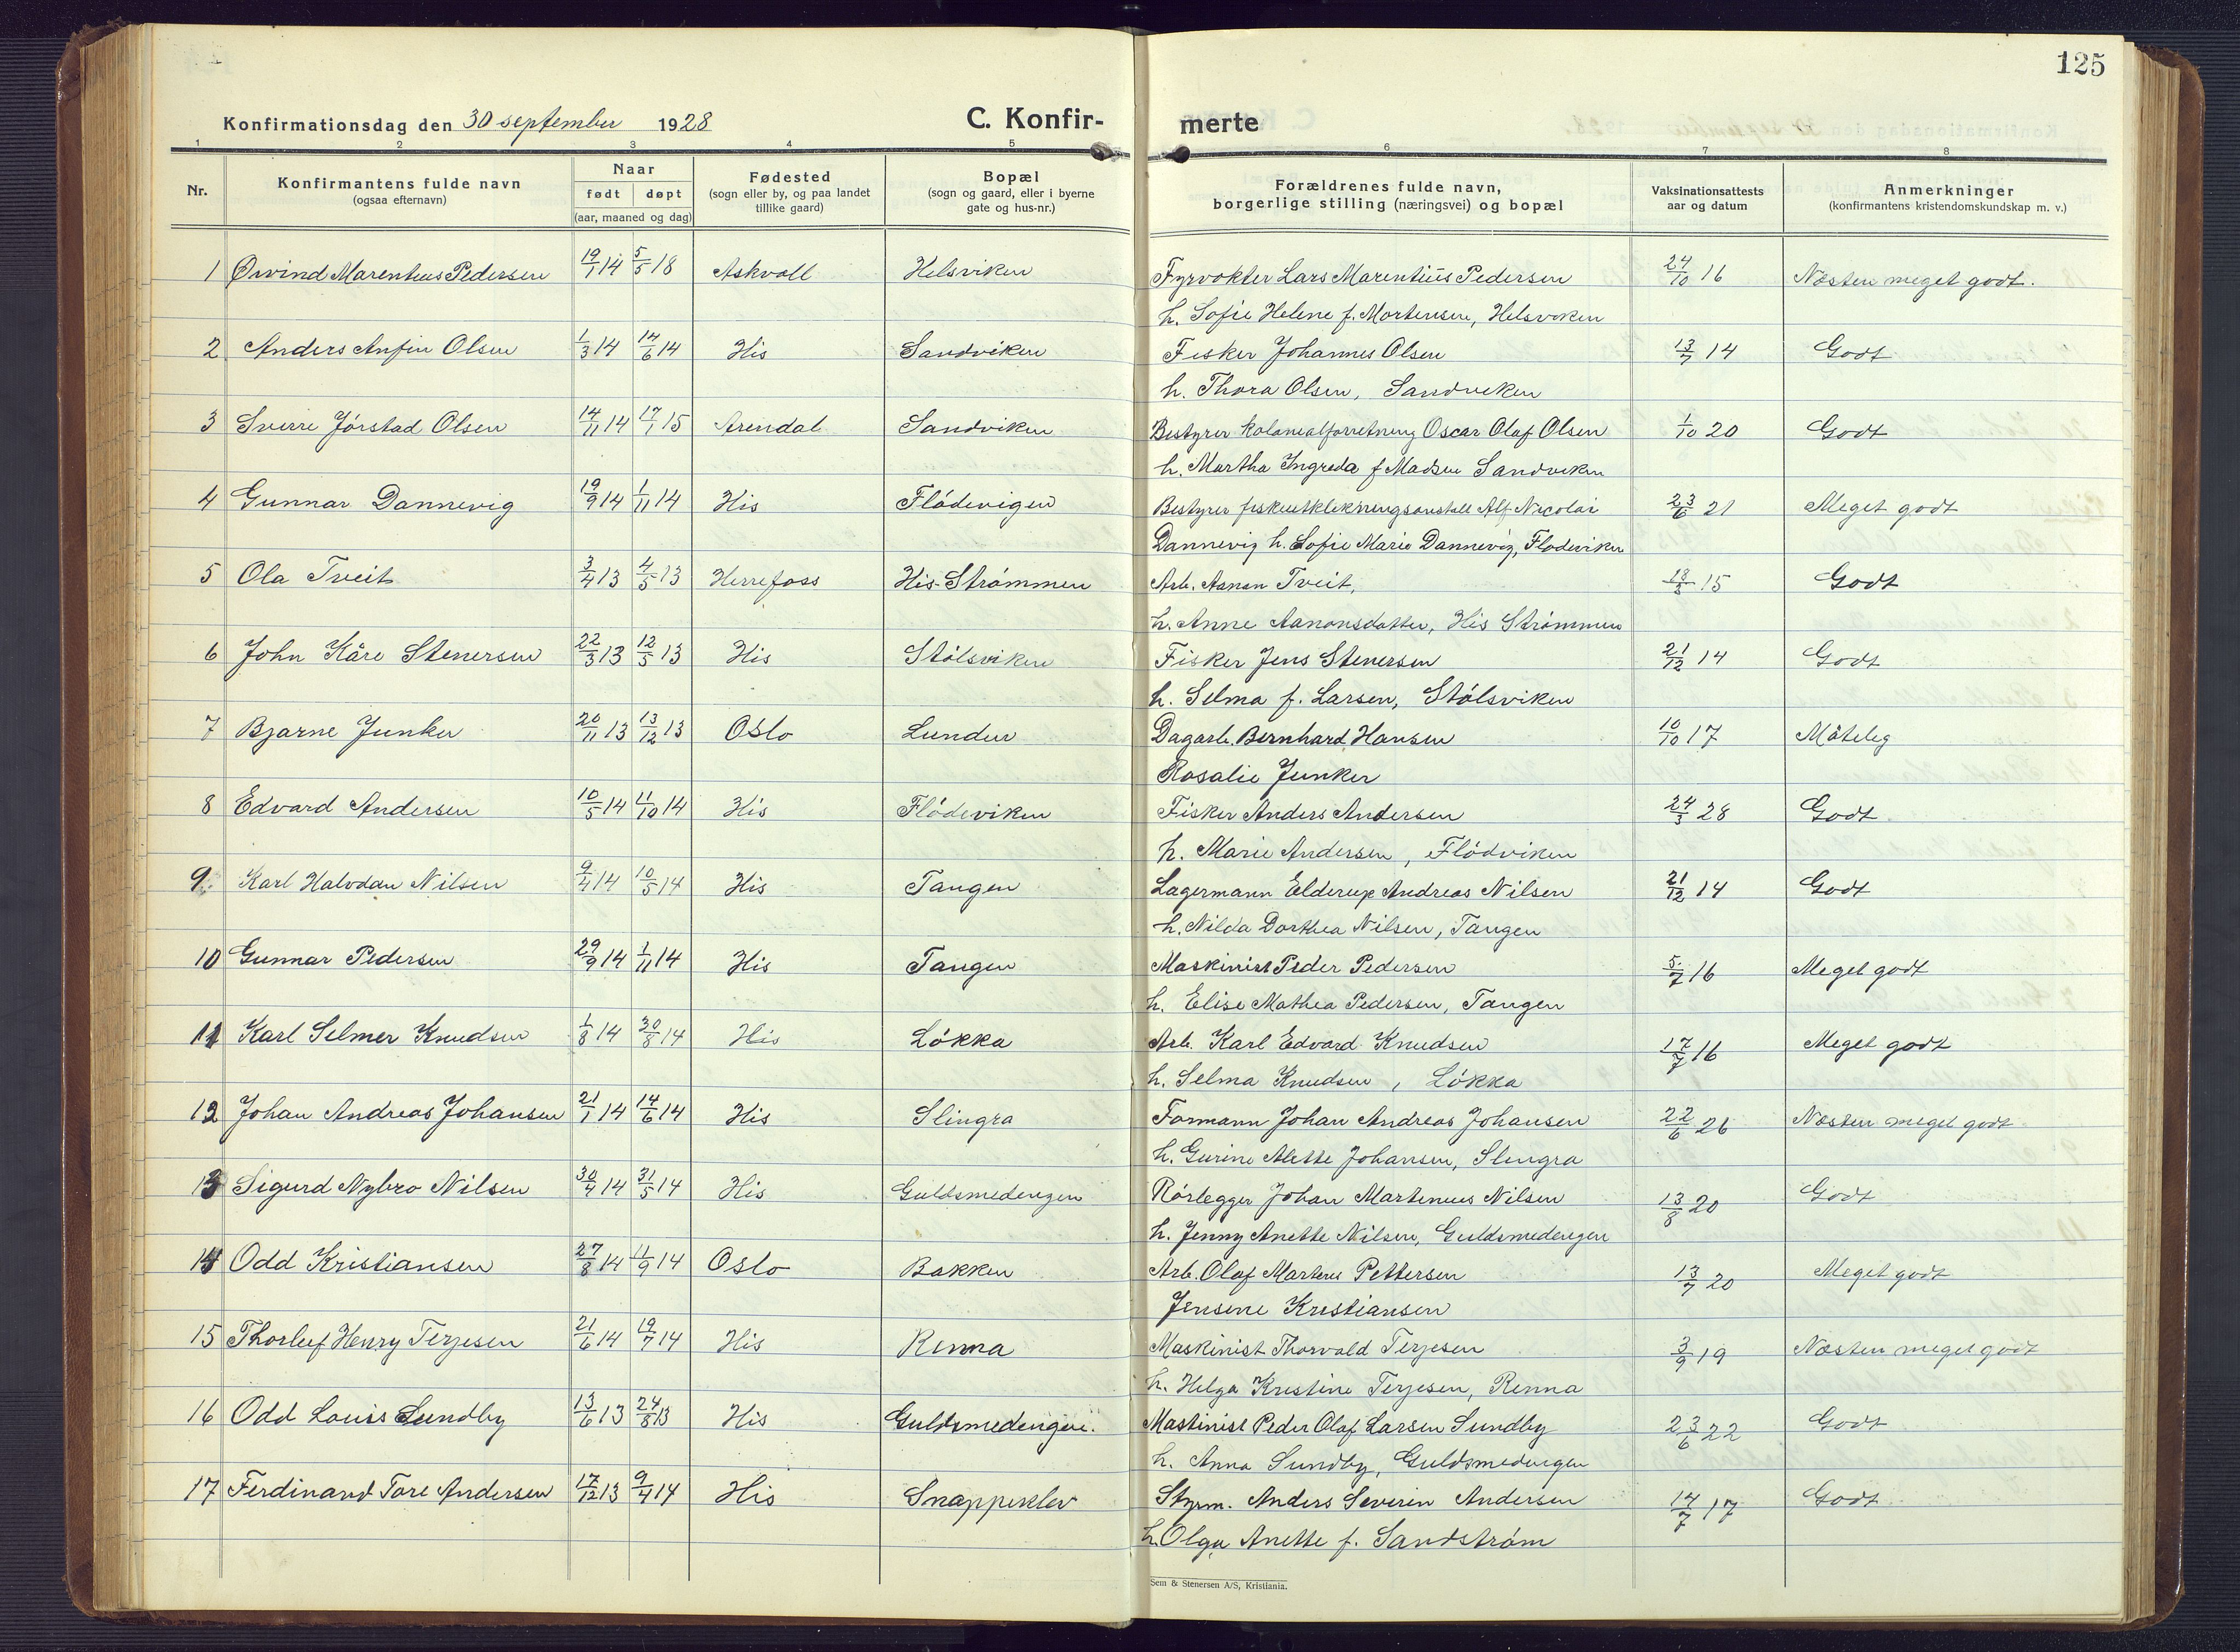 125
Konfirmationsdag den 30 september 1928
C. Konfir-
merte
1 2 3 4 5 6 7 8
Nr.
Konfirmantens fulde navn
(ogsaa efternavn)
Naar
født døpt
(aar, maaned og dag)
Fødested
(sogn eller by, og paa landet
tillike gaard)
Bopæl
(sogn og gaard, eller i byerne
gate og hus-nr.)
Forældrenes fulde navn,
borgerlige stilling (næringsvei) og bopæl
Vaksinationsattests
aar og datum
Anmerkninger
(konfirmantens kristendomskundskap m. v.)
1 Øivind Marentius Pedersen 19/1 14 5/5 18 Askvoll Helsviken Fyrvokter Lars Marentius Pedersen 24/10 16 Næsten meget godt.
h. Sofie Helene f. Mortensen, Helsviken
2 Anders Anfin Olsen 1/3 14 14/6 14 His Sandviken Fisker Johannes Olsen 13/7 14 Godt
h. Thora Olsen, Sandviken
3 Sverre Jórstad Olsen 14/11 14 17/1 15 Arendal Sandviken Bestyrer kolonialforretning Oscar Olaf Olsen 1/10 20 Godt
h. Martha Ingreda f Madsen Sandviken
4 Gunnar Dannevig 19/9 14 1/11 14 His Flódevigen Bestyrer fiskeutklekningsanstalt Alf Nicolai 23/6 21 Meget godt
Dannevig h. Sofie Marie Dannevig, Flodeviken
5 Ola Tveit 3/4 13 4/5 13 Herrefoss His-Strómmen Arb. Aanon Tveit, 18/3 15 Godt
h. Anne Aanonsdatter, His Strómmen
6 John Kåre Stenersen 22/3 13 12/5 13 His Stólsviken Fisker Jens Stenersen 21/12 14 Godt
h. Selma f. Larsen, Stólsviken
7 Bjarne Junker 20/11 13 13/12 13 Oslo Lunder Dagarb. Bernhard Hansen 10/10 17 Måtelig
Rosalie Junker
8 Edvard Andersen 10/5 14 11/10 14 His Flódeviken Fisker Anders Andersen 24/3 28 Godt
h. Marie Andersen, Flódviken
9. Karl Halvdan Nilsen 9/4 14 10/5 14 His Tangen Lagermann Elderup Andreas Nilsen 21/12 14 Godt
h. Nilda Dorthea Nilsen, Tangen
10 Gunnar Pedersen 29/9 14 1/11 14 His Tangen Maskinist Peder Pedersen 5/7 16 Meget godt
h. Elise Mathea Pedersen, Tangen
11 Karl Selmer Knudsen 1/8 14 30/8 14 His Lókka Arb. Karl Edvard Knudsen 17/7 16 Meget godt
h. Selma Knudsen, Lókka
12 Johan Andreas Johansen 21/1 14 14/6 14 His Slingra Formann Johan Andreas Johansen 22/6 26 Næsten meget godt
h. Gurine Alette Johansen, Slingra
13 Sigurd Nybro Nilsen 30/4 14 31/5 14 His Guldsmedengen Rórlegger Johan Martinius Nilsen 13/8 20 Godt
h. Jenny Anette Nilsen, Guldsmedengen
14 Odd Kristiansen 27/8 14 11/9 14 Oslo Bakken Arb. Olaf Martens Pettersen 13/7 20 Meget godt
Jensine Kristiansen
15 Thorleif Henry Terjesen 21/6 14 19/7 14 His Renna Maskinist Thorvald Terjesen 3/9 19 Næsten meget godt
h. Helga Kristine Terjesen, Renna
16 Odd Louis Sundby 13/6 13 24/8 13 His Guldsmedengen. Maskinist Peder Olaf Larsen Sundby 23/6 22 Godt
h. Anna Sundby, Guldsmedengen
17 Ferdinand Tore Andersen 17/12 13 9/4 14 His Snappeklev Styrm. Anders Severin Andersen 14/7 17 Godt
h. Olga Anette f. Sandstróm
Sem & Stenersen A/S, Kristiania.